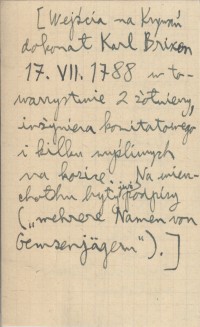 [Wejścia na Krywań
dokonał Karl Brixen
17. VII. 1788 w to-
warzystwie 2 żołnierzy,
inżyniera komitatowego
i kilku myśliwych
na kozice. Na wierz-
chołku były już podpisy
("mehrere Namen von
Gemsenjägern").]